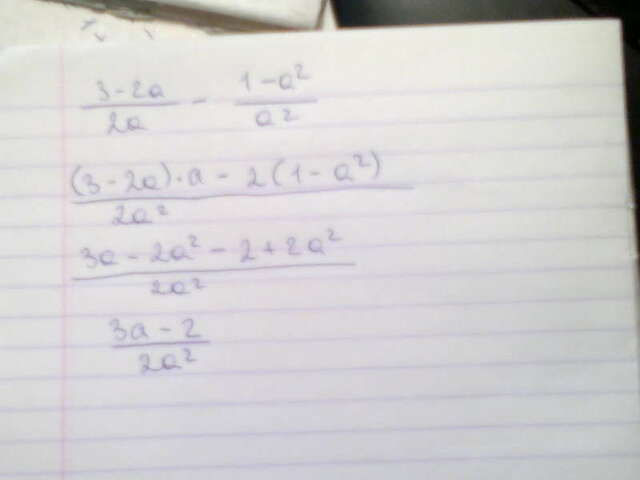 (3-2a)/(2a) - (1-a²)/(a²)
((3-2a)·a - 2(1-a²))/(2a²)
(3a-2a²-2+2a²)/(2a²)
(3a-2)/(2a²)